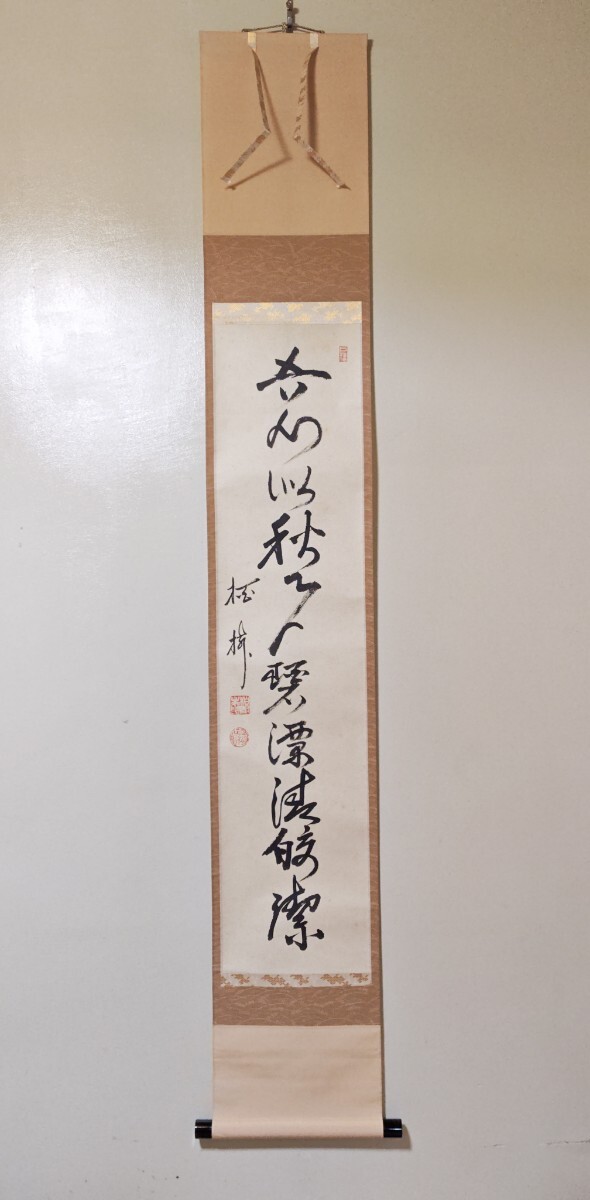 吾心似秋月碧潭清皎潔